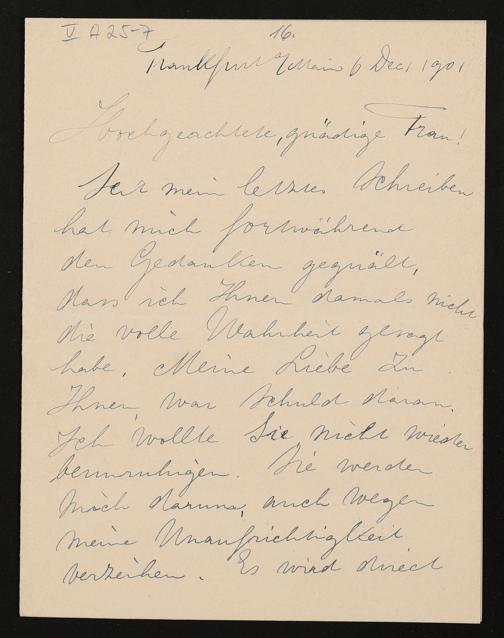 V A 25-7
16.
Frankfurt a/Main 6 Dec. 1901
Hochgeachtete, gnädige Frau!
Seit mein letztes Schreiben
hat mich fortwährend
den Gedanken gequält,
dass ich Ihnen damals nicht
die volle Wahrheit gesagt
habe. Meine Liebe zu
Ihnen war Schuld daran.
Ich wollte Sie nicht wieder
beunruhigen. Sie werden
mich darum, auch wegen
meine Unaufrichtigkeit
verzeihen. Es wird direct